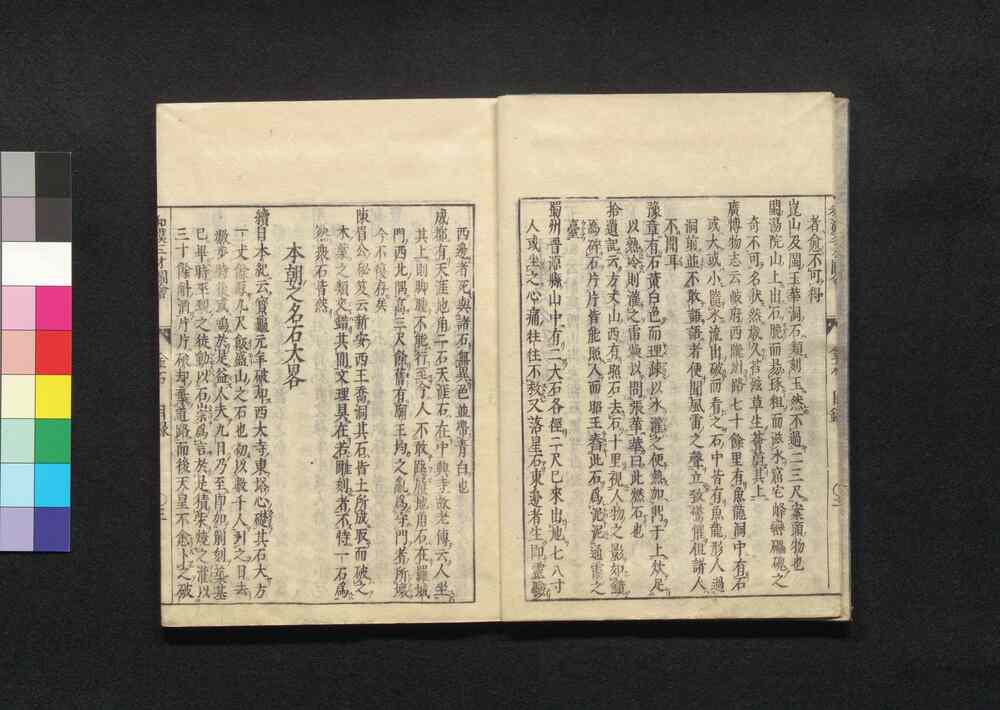 者愈不可得
崑山及閬玉華洞石類刻玉然不過二三尺案頭物也
閬湯院山上出石脆而易琢粗而滋水窟宅峰巒礧磈之
奇不可名狀然歲久苔滋草生蒼葛其上
廣博物志云岐府西隴州路七十餘里有魚龍洞中有石
或大或小隨水流出破而看之石中皆有魚龍形人過
洞前並不敢語語者便聞風雷之聲立致驚但諸人
不聞耳
豫章有石黃白色而理疎以水灌之便熱加門于上炊足
以熟冷則灌之雷煥以問張華華曰此然石也
拾遺記云方丈山西有照石去石十里視人物之影如鏡
為碎石片片皆能照人而昭王舂此石為泥泥通雲之
臺
蜀州晉原縣山中有二大石各徑二尺已來出地七八寸
人或坐之心痛往往不救又落星石東邊者生即靈驗
西邊者死與諸石無異色並帶青白也
成都有天涯地角二石天涯石在中興寺故老傳云人坐
其上則脚腫不能行至今人不敢踐履地角石在羅城
門西北隅高三尺餘舊有廟王均之亂為守門者所壞
今不復存矣
陳眉公秘笈云新安西王喬洞其石皆土所成取而破之
木葉之類交錯其間文理具在若雕刻者不特一石為
然衆石皆然
本朝之名石大畧
續日本紀云寶龜元年破却西大寺東塔心礎其石大方
一丈餘厚九尺飯盛山之石也初以數千人引之日去
數步時復或鳴於是益人夫九日乃至即加削刻築基
已畢時巫覡之徒動以石祟為言於是積柴燒之灌以
三十餘斛酒片片破却棄道路而後天皇不悆卜之破
和漢三才圖會
金石
目録